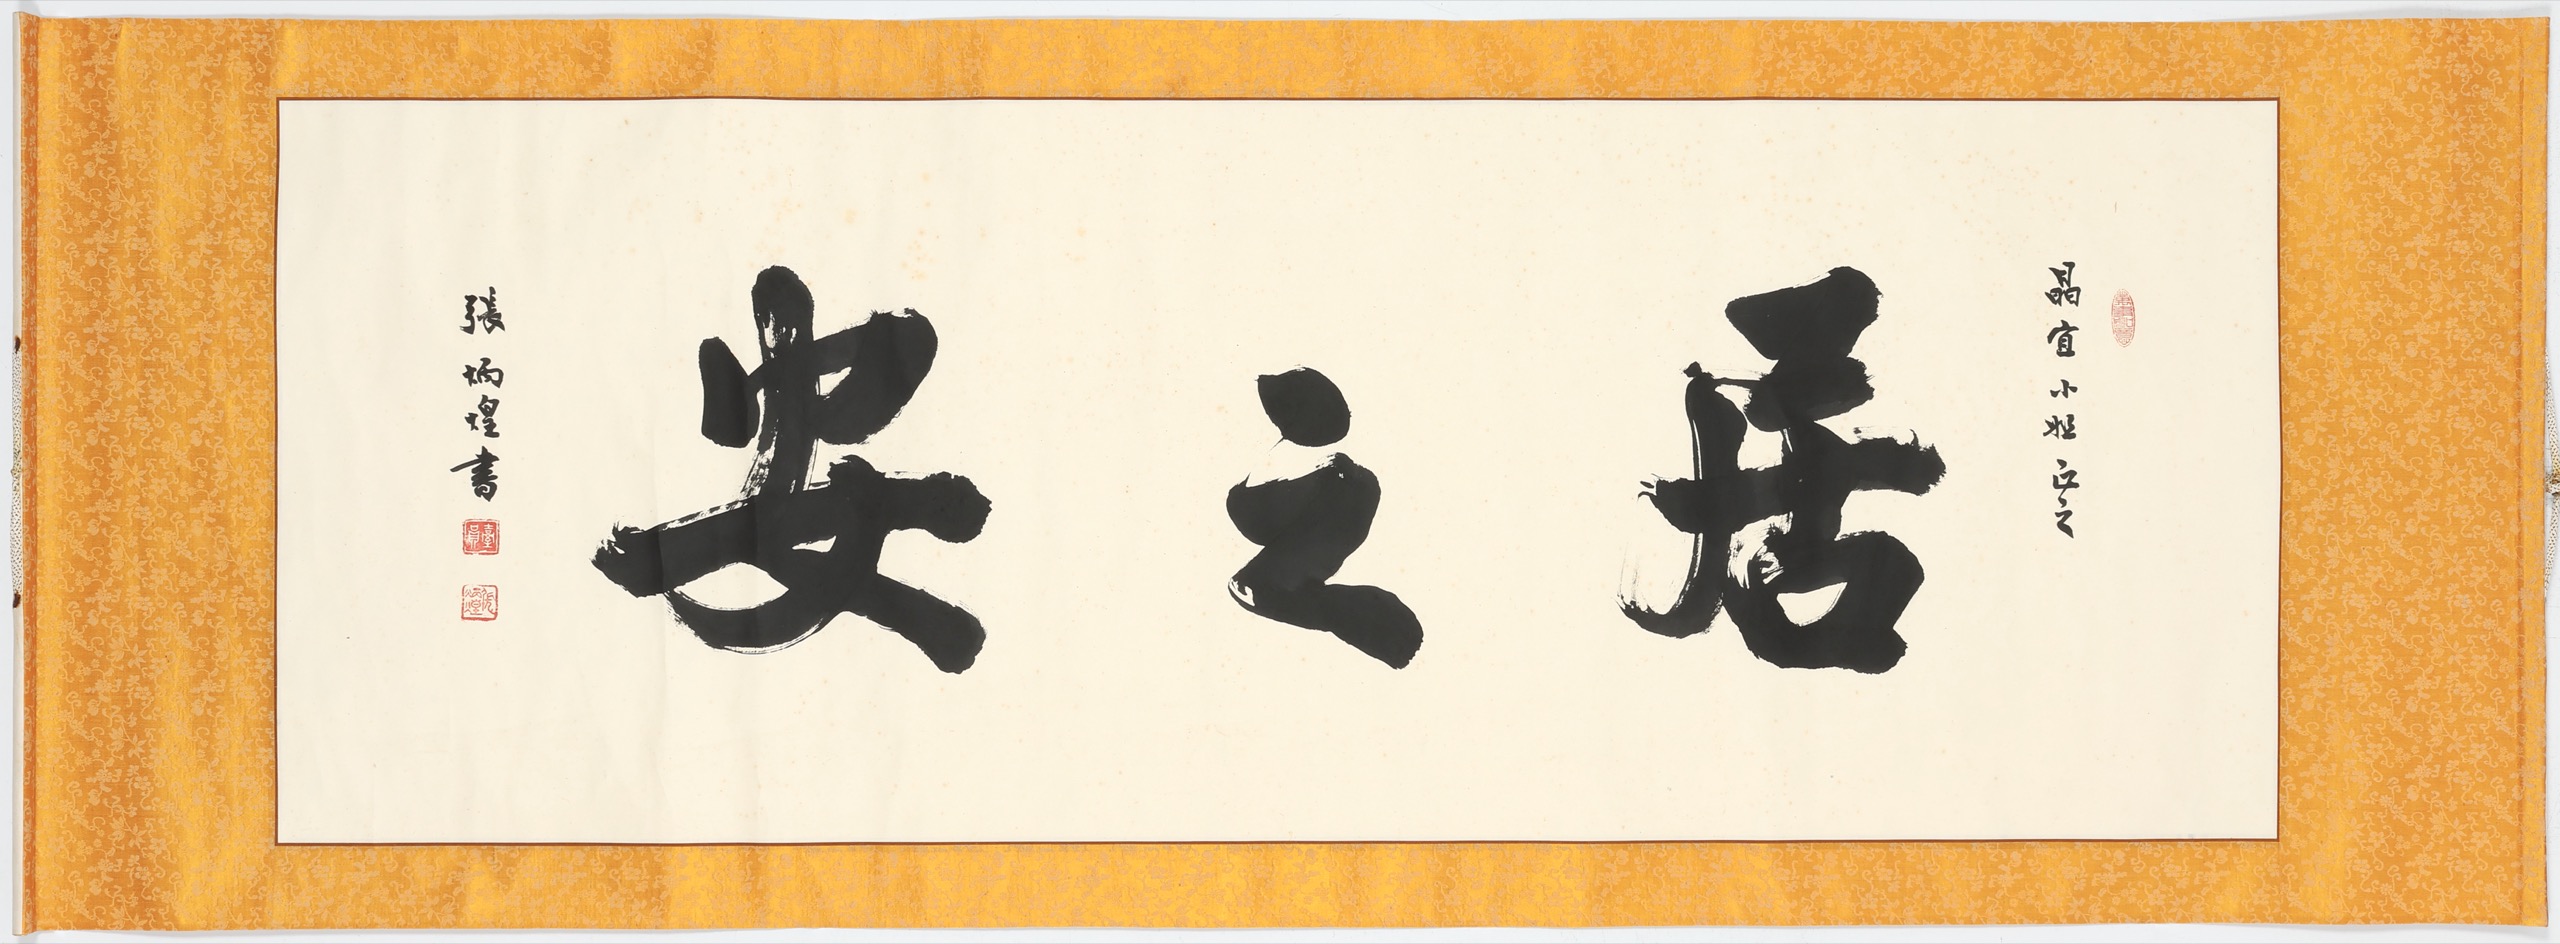 晶宜小姐正之
居之安
張炳煌書